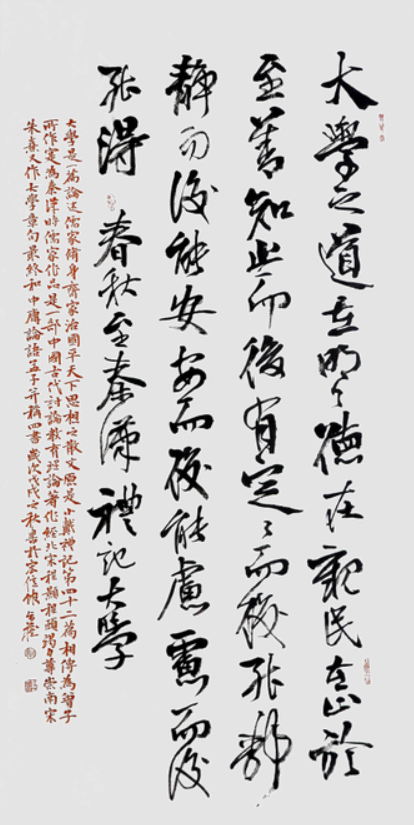 大學之道在明々德在親民在止於
至善知止而後有定々而後能靜
靜而後能安安而後能慮慮而後
能得 春秋至秦漢禮記大學
大學是一篇論述儒家修身齊家治國平天下思想之散文原是小戴禮記第四十二篇相傳為曾子
所作實為秦漢時儒家作品是一部中國古代討論教育理論著作經北宋程顥程頤竭力尊崇南宋
朱熹又作大學章句最終和中庸論語孟子并稱四書 歲次戊戌之秋書於